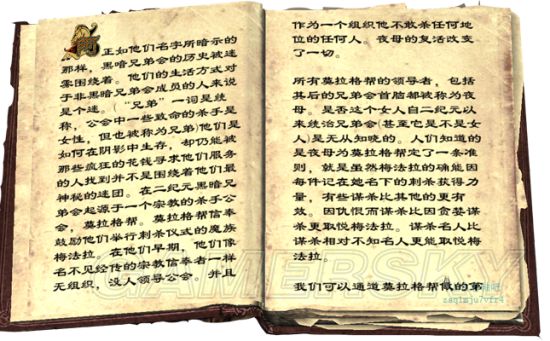 正如他们名字所暗示的
那样，黑暗兄弟会的历史被迷
雾围绕着。他们的生活方式对
于非黑暗兄弟会成员的人来说
是个迷。（“兄弟”一词是统
称，公会中一些致命的杀手是
女性，但也被称为兄弟)他们是
如何在阴影中生存，却仍能被
那些疯狂的花钱寻求他们服务
的人找到并不是围绕着他们最
神秘的迷团。在二纪元黑暗兄
弟会起源于一个宗教的杀手公
会，莫拉格帮。莫拉格帮信奉
鼓励他们举行刺杀仪式的魔族
梅法拉。在他们早期，他们像
名不见经传的宗教信奉者一样
无组织，没人领导公会。并且
作为一个组织他不敢杀任何地
位的任何人。夜母的复活改变
了一切。
所有莫拉格帮的领导者，包括
其后的兄弟会首脑都被称为夜
母，是否这个女人自二纪元以
来统治兄弟会(甚至它是不是女
人)是无从知晓的。人们知道的
是夜母为莫拉格帮定了一条准
则，就是虽然梅法拉的确能因
每件记在她名下的刺杀获得力
量，有些谋杀比其他的更有
效。因仇恨而谋杀比因贪婪谋
杀更取悦梅法拉。谋杀名人比
谋杀相对不知名人更能取悦梅
法拉。
我们可以通道莫拉格帮做的第
GAMERSKY
zaq1mju7vfr4